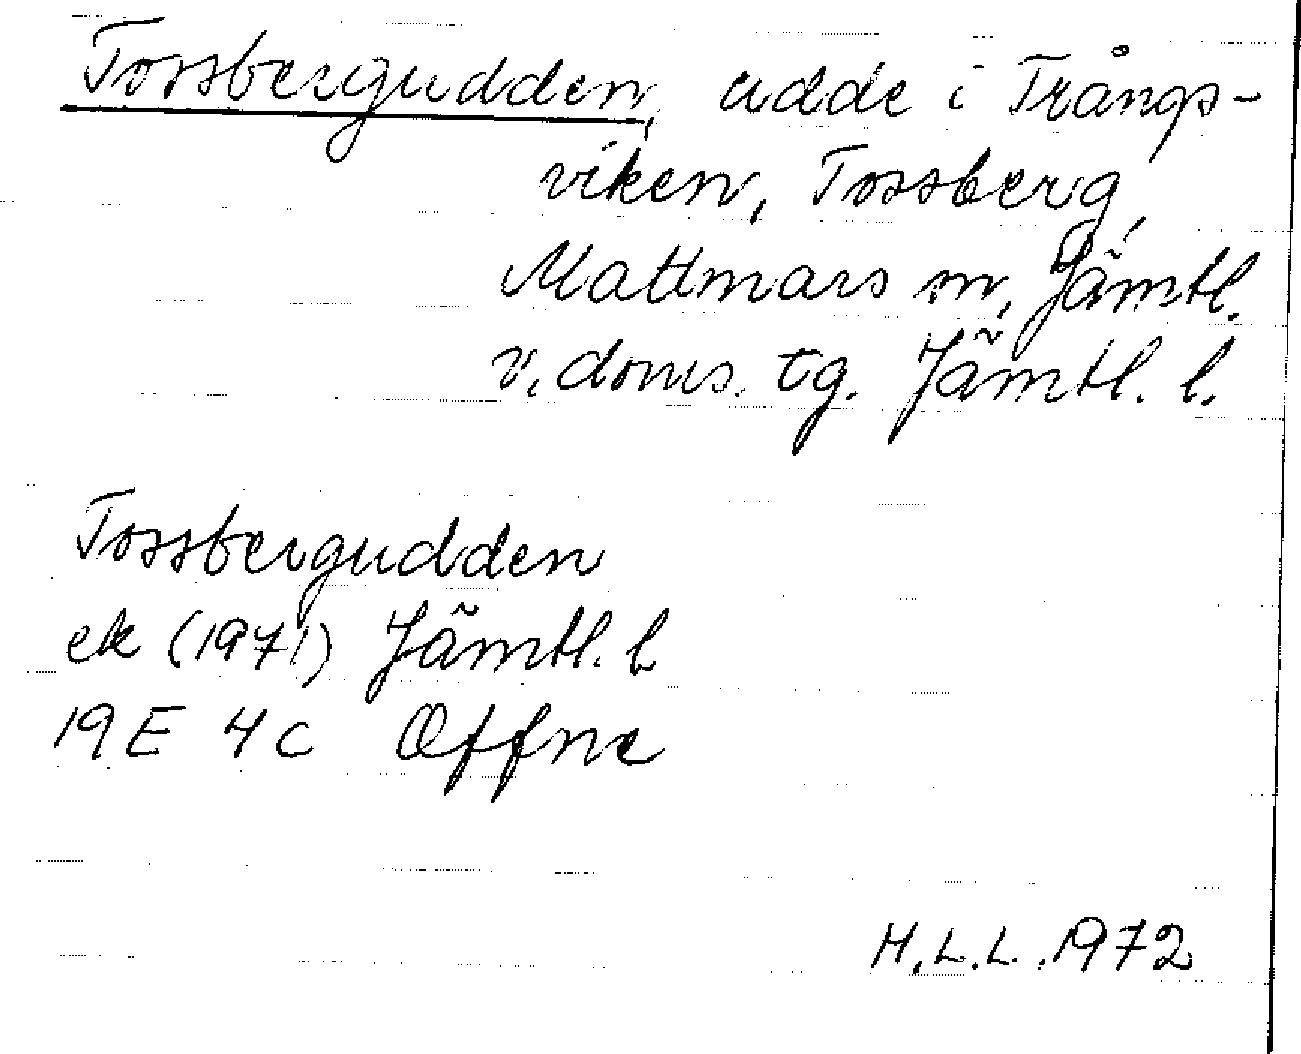 Tossbergudden, udde i Trångs-
viken, Tossberg,
Mattmars sn, Jämtl.
v. doms. tg. Jämtl. l.
Tossbergudden
ek (1971) Jämtl. l
19E 4c Offne
H.L.L. 1972